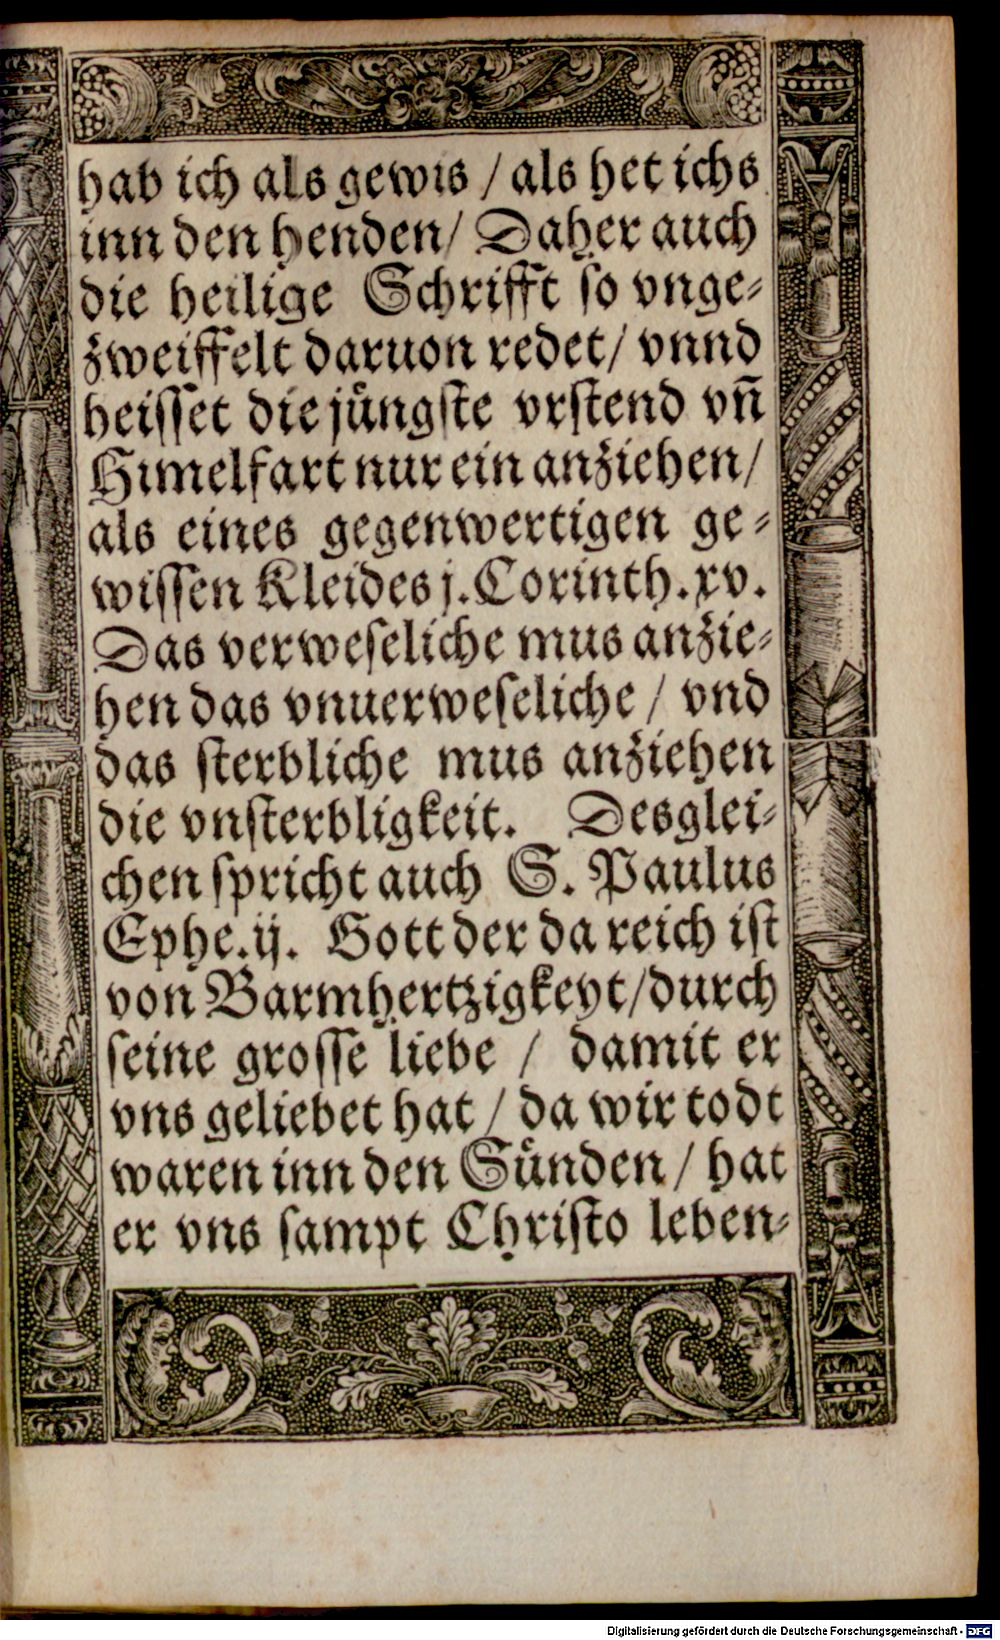 hab ich als gewis / als het ichs
inn den henden / Daher auch
die heilige Schrifft so vnge⸗
zweiffelt daruon redet / vnnd
heisset die jüngste vrstend vn̄
Himelfart nur ein anziehen /
als eines gegenwertigen ge⸗
wissen Kleides j. Corinth. xv.
Das verweseliche mus anzie⸗
hen das vnuerweseliche / vnd
das sterbliche mus anziehen
die vnsterbligkeit. Desglei⸗
chen spricht auch S. Paulus
Ephe. ij. Gott der da reich ist
von Barmhertzigkeyt / durch
seine grosse liebe / damit er
vns geliebet hat / da wir todt
waren inn den Sünden / hat
er vns sampt Christo leben⸗
Digitalisierung gefördert durch die Deutsche Forschungsgemeinschaft - DFG